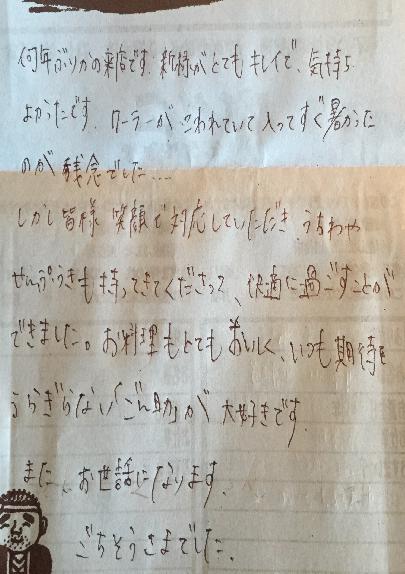 何年ぶりかの来店です。新様がとてもキレイで、気持ち
よかったです。クーラーが われていて入ってすぐ暑かった
のが残念でした....
しかし皆様 笑顔で対応していただき、うちわや
せんぷうきも持ってきてくださって、快適に過ごすことが
できました。お料理もとてもおいしく、いつも期待を
うらぎらない「ごん助」が大好きです。
また、お世話になります。
ごちそうさまでした。